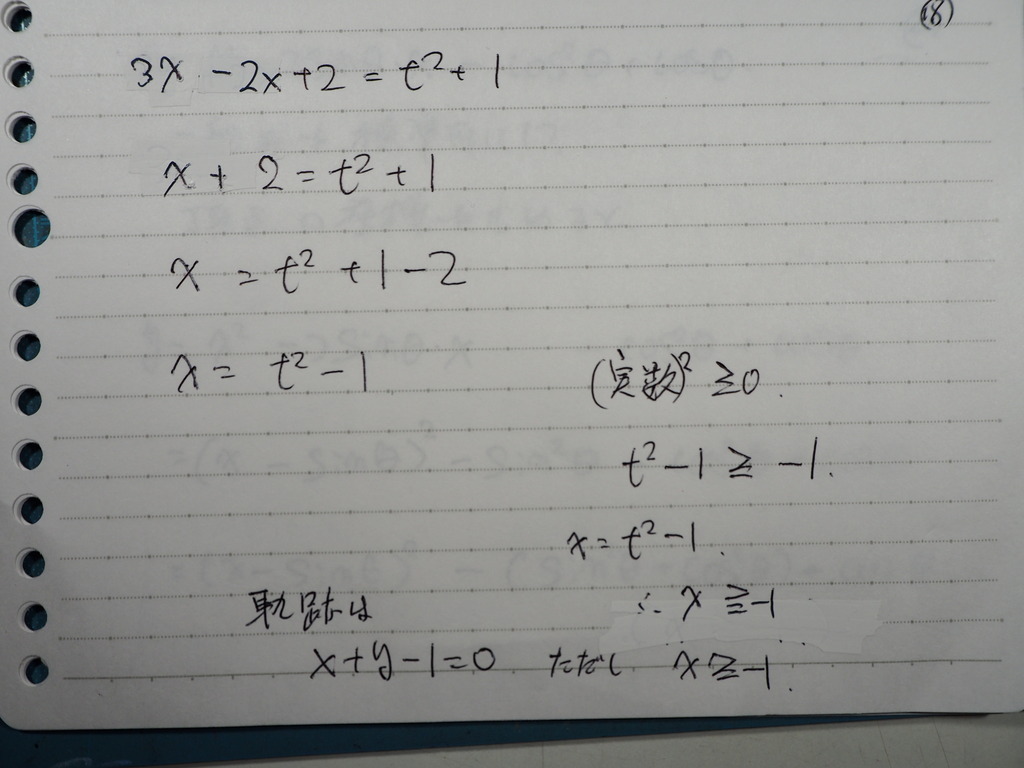 (8)
3x - 2x + 2 = t² + 1
x + 2 = t² + 1
x = t² + 1 - 2
x = t² - 1
(実数)² ≧ 0.
t² - 1 ≧ -1.
x = t² - 1.
∴ x ≧ -1
軌跡は
x + y - 1 = 0 ただし x ≧ -1.